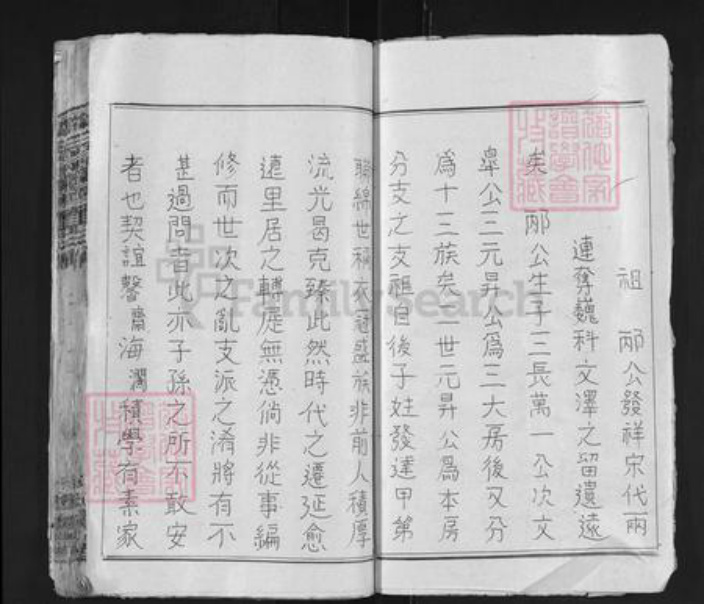 祖 邴公發祥宋代兩
連奪巍科文澤之留遺遠
矣 邴公生子三長萬一公次文
皐公三元昇公為三大房後又分
為十三族矣二世元昇公為本房
分支之支祖自後子姓發達甲第
聯綿世稱衣冠盛族非前人積厚
流光曷克臻此然時代之遷延愈
遠里居之轉徙無憑倘非從事編
修而世次之亂支派之淆將有不
甚過問者此亦子孫之所不敢安
者也契誼馨齋海瀾積學有素家
FamilySearch